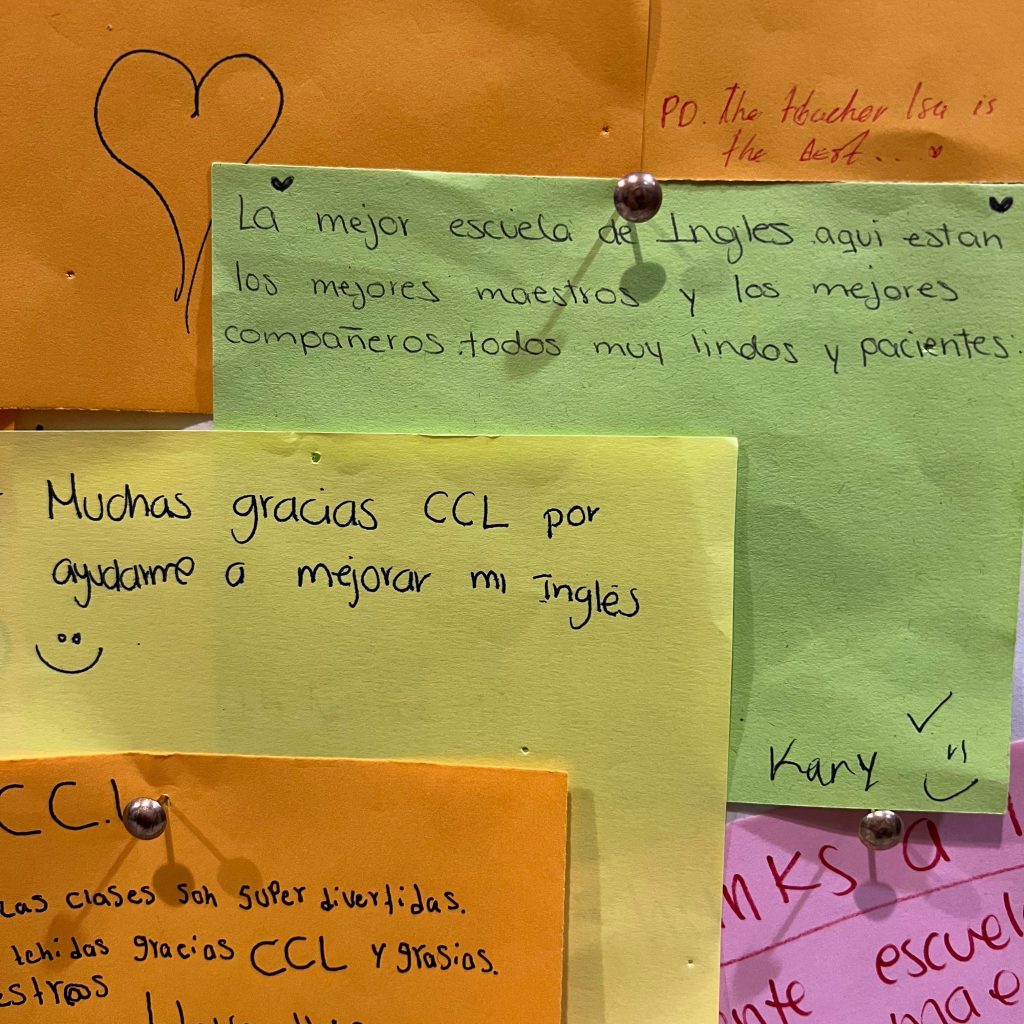 PD. The teacher Isa is
the best...
La mejor escuela de Ingles. aqui estan
los mejores maestros y los mejores
compañeros. todos muy lindos y pacientes.
Muchas gracias CCL por
ayudarme a mejorar mi Inglés
Kary
C.C.L
Las clases son super divertidas.
tenidas gracias CCL y grasias.
estros
a
escuel
nte
mae